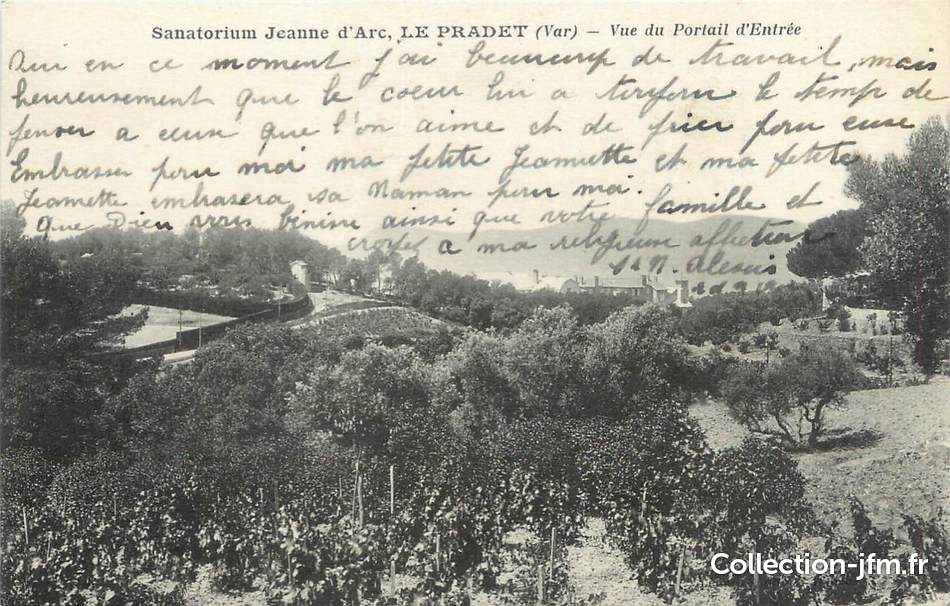 Sanatorium Jeanne d'Arc, LE PRADET (Var) — Vue du Portail d'Entrée
Qui en ce moment j'ai beaucoup de travail, mais
heureusement que le coeur lui a toujours le temps de
penser a ceux que l'on aime et de prier pour eux
Embrasser pour moi ma petite Jeannette et ma petite
Jeannette embrasera sa Maman pour moi.
Que Dieu vous bénisse ainsi que votre famille et
croyez a ma religieuse affection
Sr M. Alexis
Collection-jfm.fr